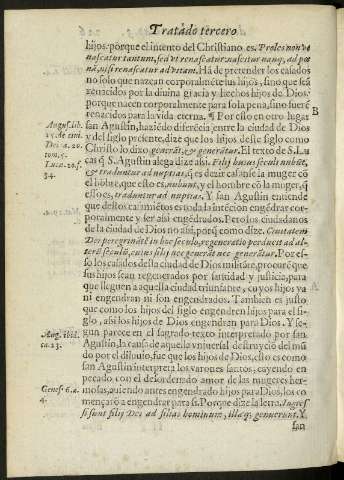 Tratado tercero
hijos: porque el intento del Christiano es. Proles non vt
nascatur tantum, sed vt renascatur, nascitur nanq; ad pœ
nã, nisi renascatur ad vitam. Hã de pretender los casados
no solo que nazcan corporalmẽte sus hijos, sino que seã
renacidos por la diuina gracia y hechos hijos de Dios:
porque nacen corporalmente para sola pena, sino fuerẽ
renacidos para la vida eterna. ¶ Por esso en otro lugar
B
Augus. lib.
san Agustin, haziẽdo diferẽcia entre la ciudad de Dios
15. de ciui.
y del siglo presente, dize que los hijos deste siglo como
Dei. c. 20.
tom. 5.
Christo lo dixo, generãt, & generãtur. El texto de S. Lu
Luca. 20. f.
cas q̃ S. Agustin alega dize assi. Filij huius seculi nubũt,
34.
& traduntur ad nuptias, q̃ es dezir casanse la muger cõ
el hõbre, que esto es, nubunt, y el hombre cõ la muger, q̃
esso es, traduntur ad nuptias. Y san Agustin entiende
que destos casamiẽtos es toda la intẽcion engẽdrar cor-
poralmente y ser assi engẽdrados. Pero los ciudadanos
de la ciudad de Dios no assi, porq̃ como dize. Ciuitatem
Dei peregrinãtẽ in hoc seculo, regeneratio perducit ad al-
terũ seculũ, cuius filij nec generãt nec generãtur. Por es-
so los casados desta ciudad de Dios militãte, procurẽ que
sus hijos sean regenerados por santidad y justicia, para
que lleguen a aquella ciudad triunfante, cuyos hijos ya
ni engendran ni son engendrados. Tambien es justo
que como los hijos del siglo engendren hijos para el si-
glo, assi los hijos de Dios engendran para Dios. Y se-
Aug. ibid.
gun parece en el sagrado texto interpretado por san
ca. 23.
Agustin, la causa de aquella vniuersal destruyciõ del mũ
do por el diluuio, fue que los hijos de Dios, esto es como
san Agustin interpreta los varones santos, cayendo en
pecado, con el desordenado amor de las mugeres her-
Genes. 6. a.
mosas, auiendo antes engendrado hijos para Dios, los co
4.
mençarõ a engendrar para si. Porque dize la letra. Ingres
si sunt filij Dei ad filias hominum, illæq; genuerunt. Y
san